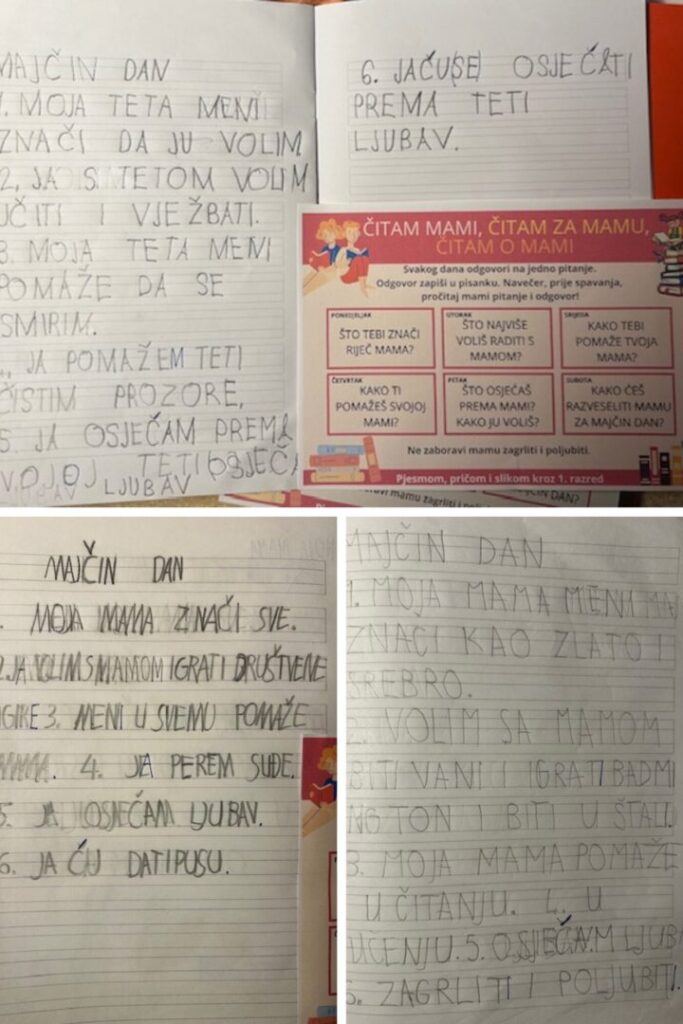 MAJČIN DAN
1. MOJA TETA MENI
ZNAČI DA JU VOLIM
2, JA S TETOM VOLIM
UČITI I VJEŽBATI.
3. MOJA TETA MENI
POMAŽE DA SE
SMIRIM.
JA POMAŽEM TETI
ČISTIM PROZORE,
5. JA OSJEČAM PREMA
TETI
LJUBAV
6. JAČU(SE) OSJEČATI
PREMA TETI
LJUBAV.
ČITAM MAMI, ČITAM ZA MAMU,
ČITAM O MAMI
Svakog dana odgovori na jedno pitanje.
Odgovor zapiši u pisanku. Navečer, prije spavanja,
pročitaj mami pitanje i odgovor!
PONEDJELJAK
ŠTO TEBI ZNAČI
RIJEČ MAMA?
UTORAK
ŠTO NAJVIŠE
VOLIŠ RADITI S
MAMOM?
SRIJEDA
KAKO TEBI
POMAŽE TVOJA
MAMA?
ČETVRTAK
KAKO TI
POMAŽEŠ SVOJOJ
MAMI?
PETAK
ŠTO OSJEĆAŠ
PREMA MAMI?
KAKO JU VOLIŠ?
SUBOTA
KAKO ĆEŠ
RAZVESELITI MAMU
ZA MAJČIN DAN?
Ne zaboravi mamu zagrliti i poljubiti.
Pjesmom, pričom i slikom kroz 1. razred
MAJČIN DAN
MOJA MAMA ZNAČI SVE.
2. JA VOLIM S MAMOM IGRATI DRUŠTVENE
IGIKE 3. MENI U SVEMU POMAŽE
MAMA. 4. JA PEREM SUĐE.
5. JA OSJEČAM LJUBAV.
6. JA ĆU DATIPUSU.
MAJČIN DAN
1. MOJA MAMA MENI
ZNAČI KAO ZLATO I
SREBRO.
2. VOLIM SA MAMOM
BITI VANI I IGRATI BADMI
NGTON I BITI U ŠTALI.
3. MOJA MAMA POMAŽE
U ČITANJU. 4. U
UČENJU. 5. OSJEČAM LJUB
6. ZAGRLITI I POLJUBITI.